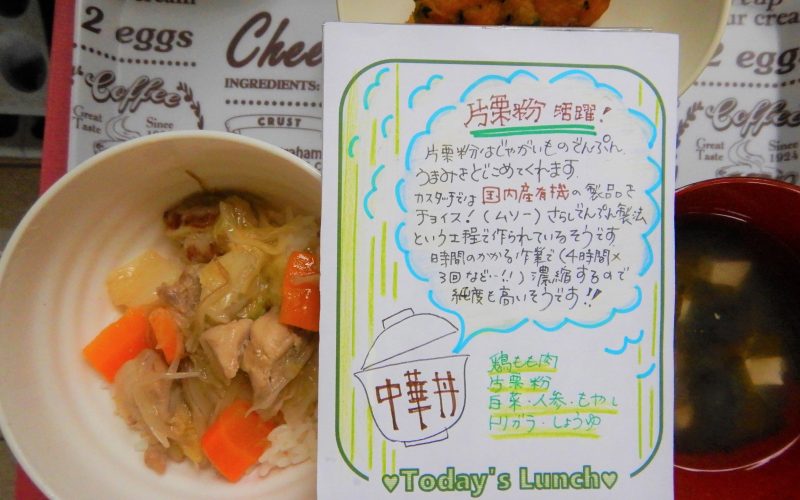 2 eggs
Coffee
Great Taste
Since 1924
Chee
INGREDIENTS:
CRUST
raham
片栗粉 活躍!
片栗粉はじゃがいものでんぷん。
うまみをとじこめてくれます。
カスタッチでは国内産有機の製品を
チョイス!(ムソー)さらしでんぷん製法
という工程で作られているそうです
時間のかかる作業で(4時間×
3回など…!!)濃縮するので
純度も高いそうです!!
中華丼
鶏もも肉
片栗粉
白菜・人参・もやし
トリガラ・しょうゆ
♥Today's Lunch♥
ur cream
2 eggs
Coffee
Great Taste
Since 1924